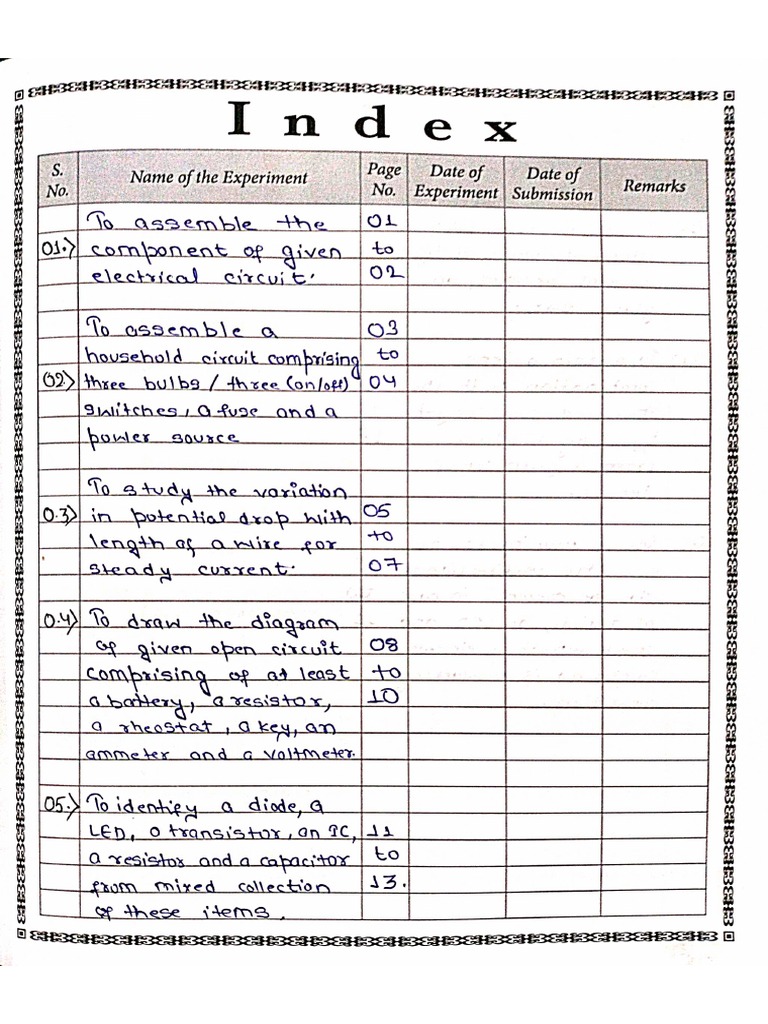 Index
S. No. Name of the Experiment Page No. Date of Experiment Date of Submission Remarks
To assemble the 01
01.) component of given to
electrical circuit. 02
To assemble a 03
household circuit comprising to
02) three bulbs / three (on/off) 04
switches, a fuse and a
power source
To study the variation
0.3) in potential drop with 05
length of a wire for to
steady current. 07
0.4) To draw the diagram
of given open circuit 08
comprising of at least to
a battery, a resistor, 10
a rheostat, a key, an
ammeter and a voltmeter.
05.) To identify a diode, a
LED, a transistor, an IC, 11
a resistor and a capacitor to
from mixed collection 13.
of these items.